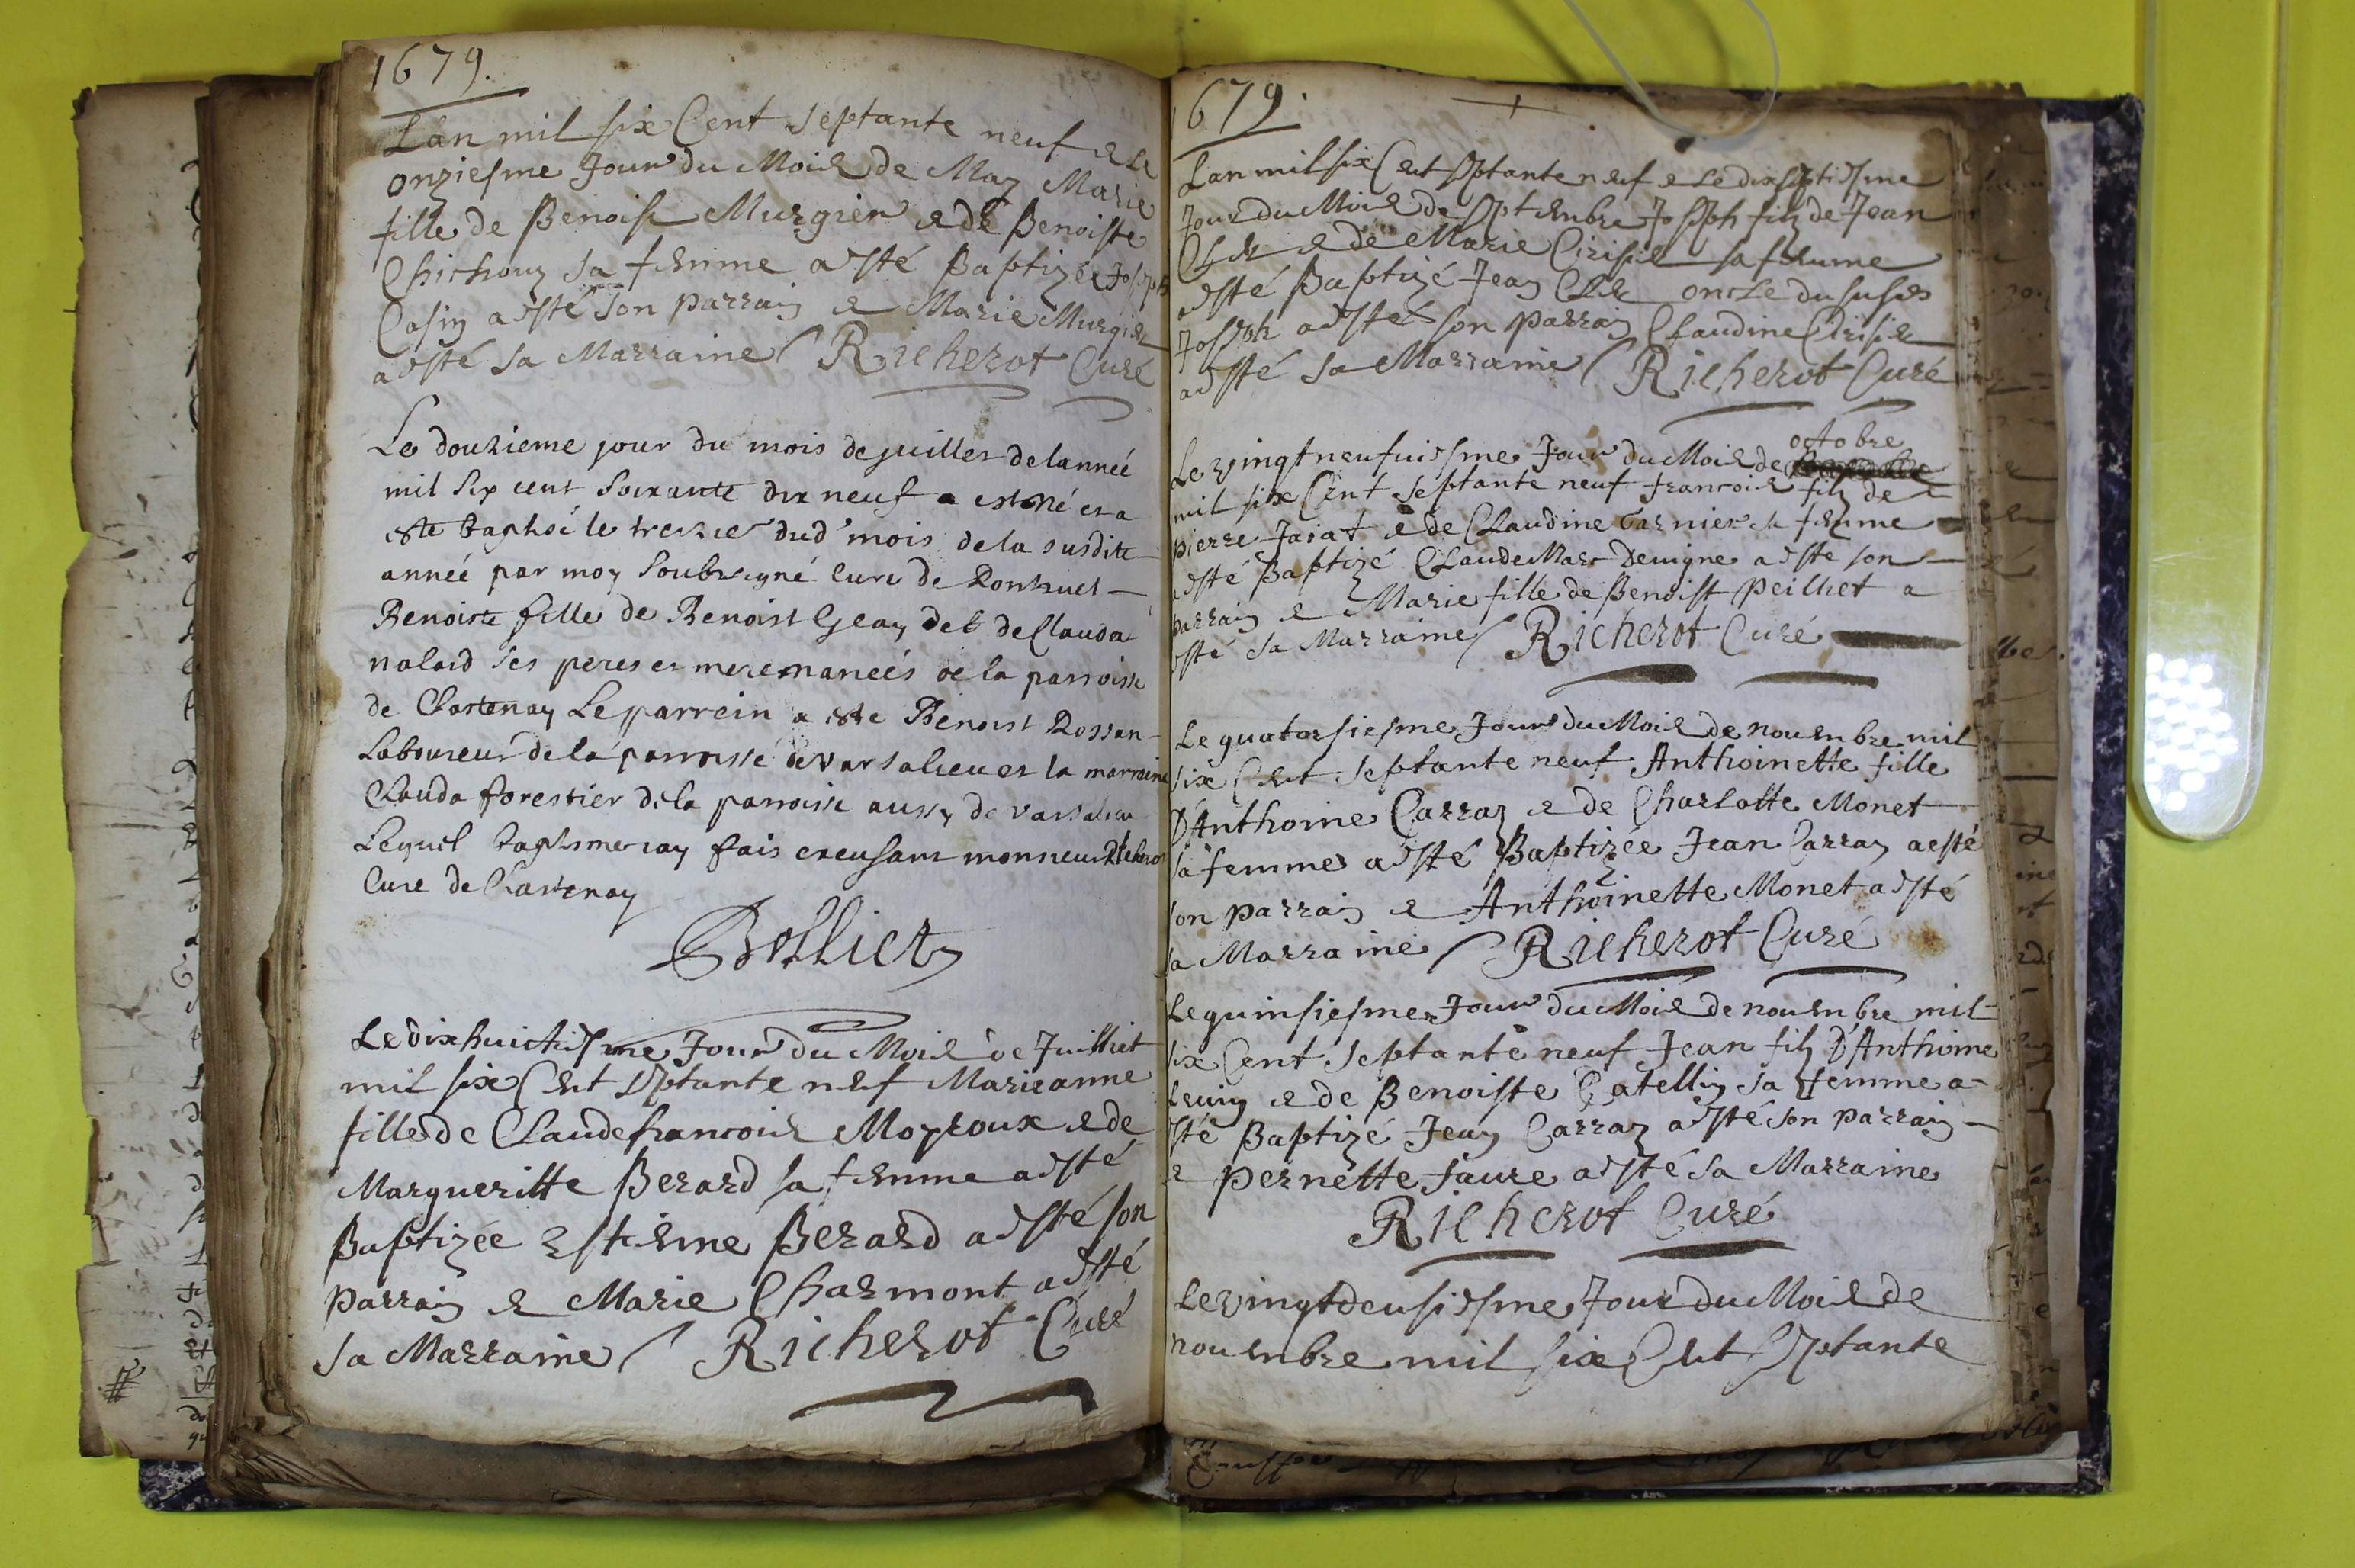 1679.
L'an mil six Cent septante neuf & le
onziesme Jour du Mois de May Marie
fille de Benoist Murgier & de Benoiste
Chichoux sa femme a esté Baptizée Joseph
Casin a esté son parrain & Marie Murgier
a esté sa Marraine / Richerot Curé
Le douzieme jour du mois de juillet de lanneé
mil six cent soixante dix neuf a est né et a
este baptisé le treziè dud' mois de la susdite
anneé par moy soubsigné curé de
Benoiste fille de Benoist Geay et de Clauda
nalaid ses peres et mere marieés de la parroisse
de Chastenay Le parrein a este Benoist Rossan
Laboureur de la parroisse de varsalieu et la marraine
Clauda forestier de la parroisse aussy de varsalieu
Lequel baptisme iay fais en monsieur Richerot
Cure de Chastenay
Bolliet
Le dixhuictiesme Jour du Mois de Juilliet
mil six Cent septante neuf Marieanne
fille de Claude francois Moyroux & de
Margueritte Berard sa femme a esté
Baptizée Estienne Berard a esté son
parrain & Marie Charmont a esté
sa Marraine / Richerot Curé
1679.
Lan mil six Cent septante neuf & Le dixseptiesme
Jour du Mois de septembre Joseph filz de Jean
Cler & de Marie Cirisier sa femme
a esté Baptizé Jean Cler oncle du susdes
Joseph a esté son parrain Claudine Cirisier
a esté sa Marraine / Richerot Curé
octobre
Le vingt neufuiesme Jour du Mois de
mil six Cent septante neuf francois filz de
pierre Jaiat & de Claudine Garnier sa femme
a esté Baptizé Claude Marc Deuigne a este son
parrain & Marie fille de Benoist Peilliet a
esté sa Marraine / Richerot Curé
Le quatorsiesme Jour du Mois de nouembre mil
six Cent septante neuf Anthoinette fille
D'Anthoine Carraz & de Charlotte Monet
sa femme a esté Baptizée Jean Carraz a esté
son parrain & Anthoinette Monet a esté
sa Marraine / Richerot Curé
Le quinsiesme Jour du Mois de nouembre mil
six Cent septante neuf Jean filz D'Anthoine
& de Benoiste Gatellin sa femme a
esté Baptizé Jean Carraz a esté son parrain
& Pernette faure a esté sa Marraine
Richerot Curé
Le vingtdeusiesme Jour du Mois de
nouembre mil six Cent septante